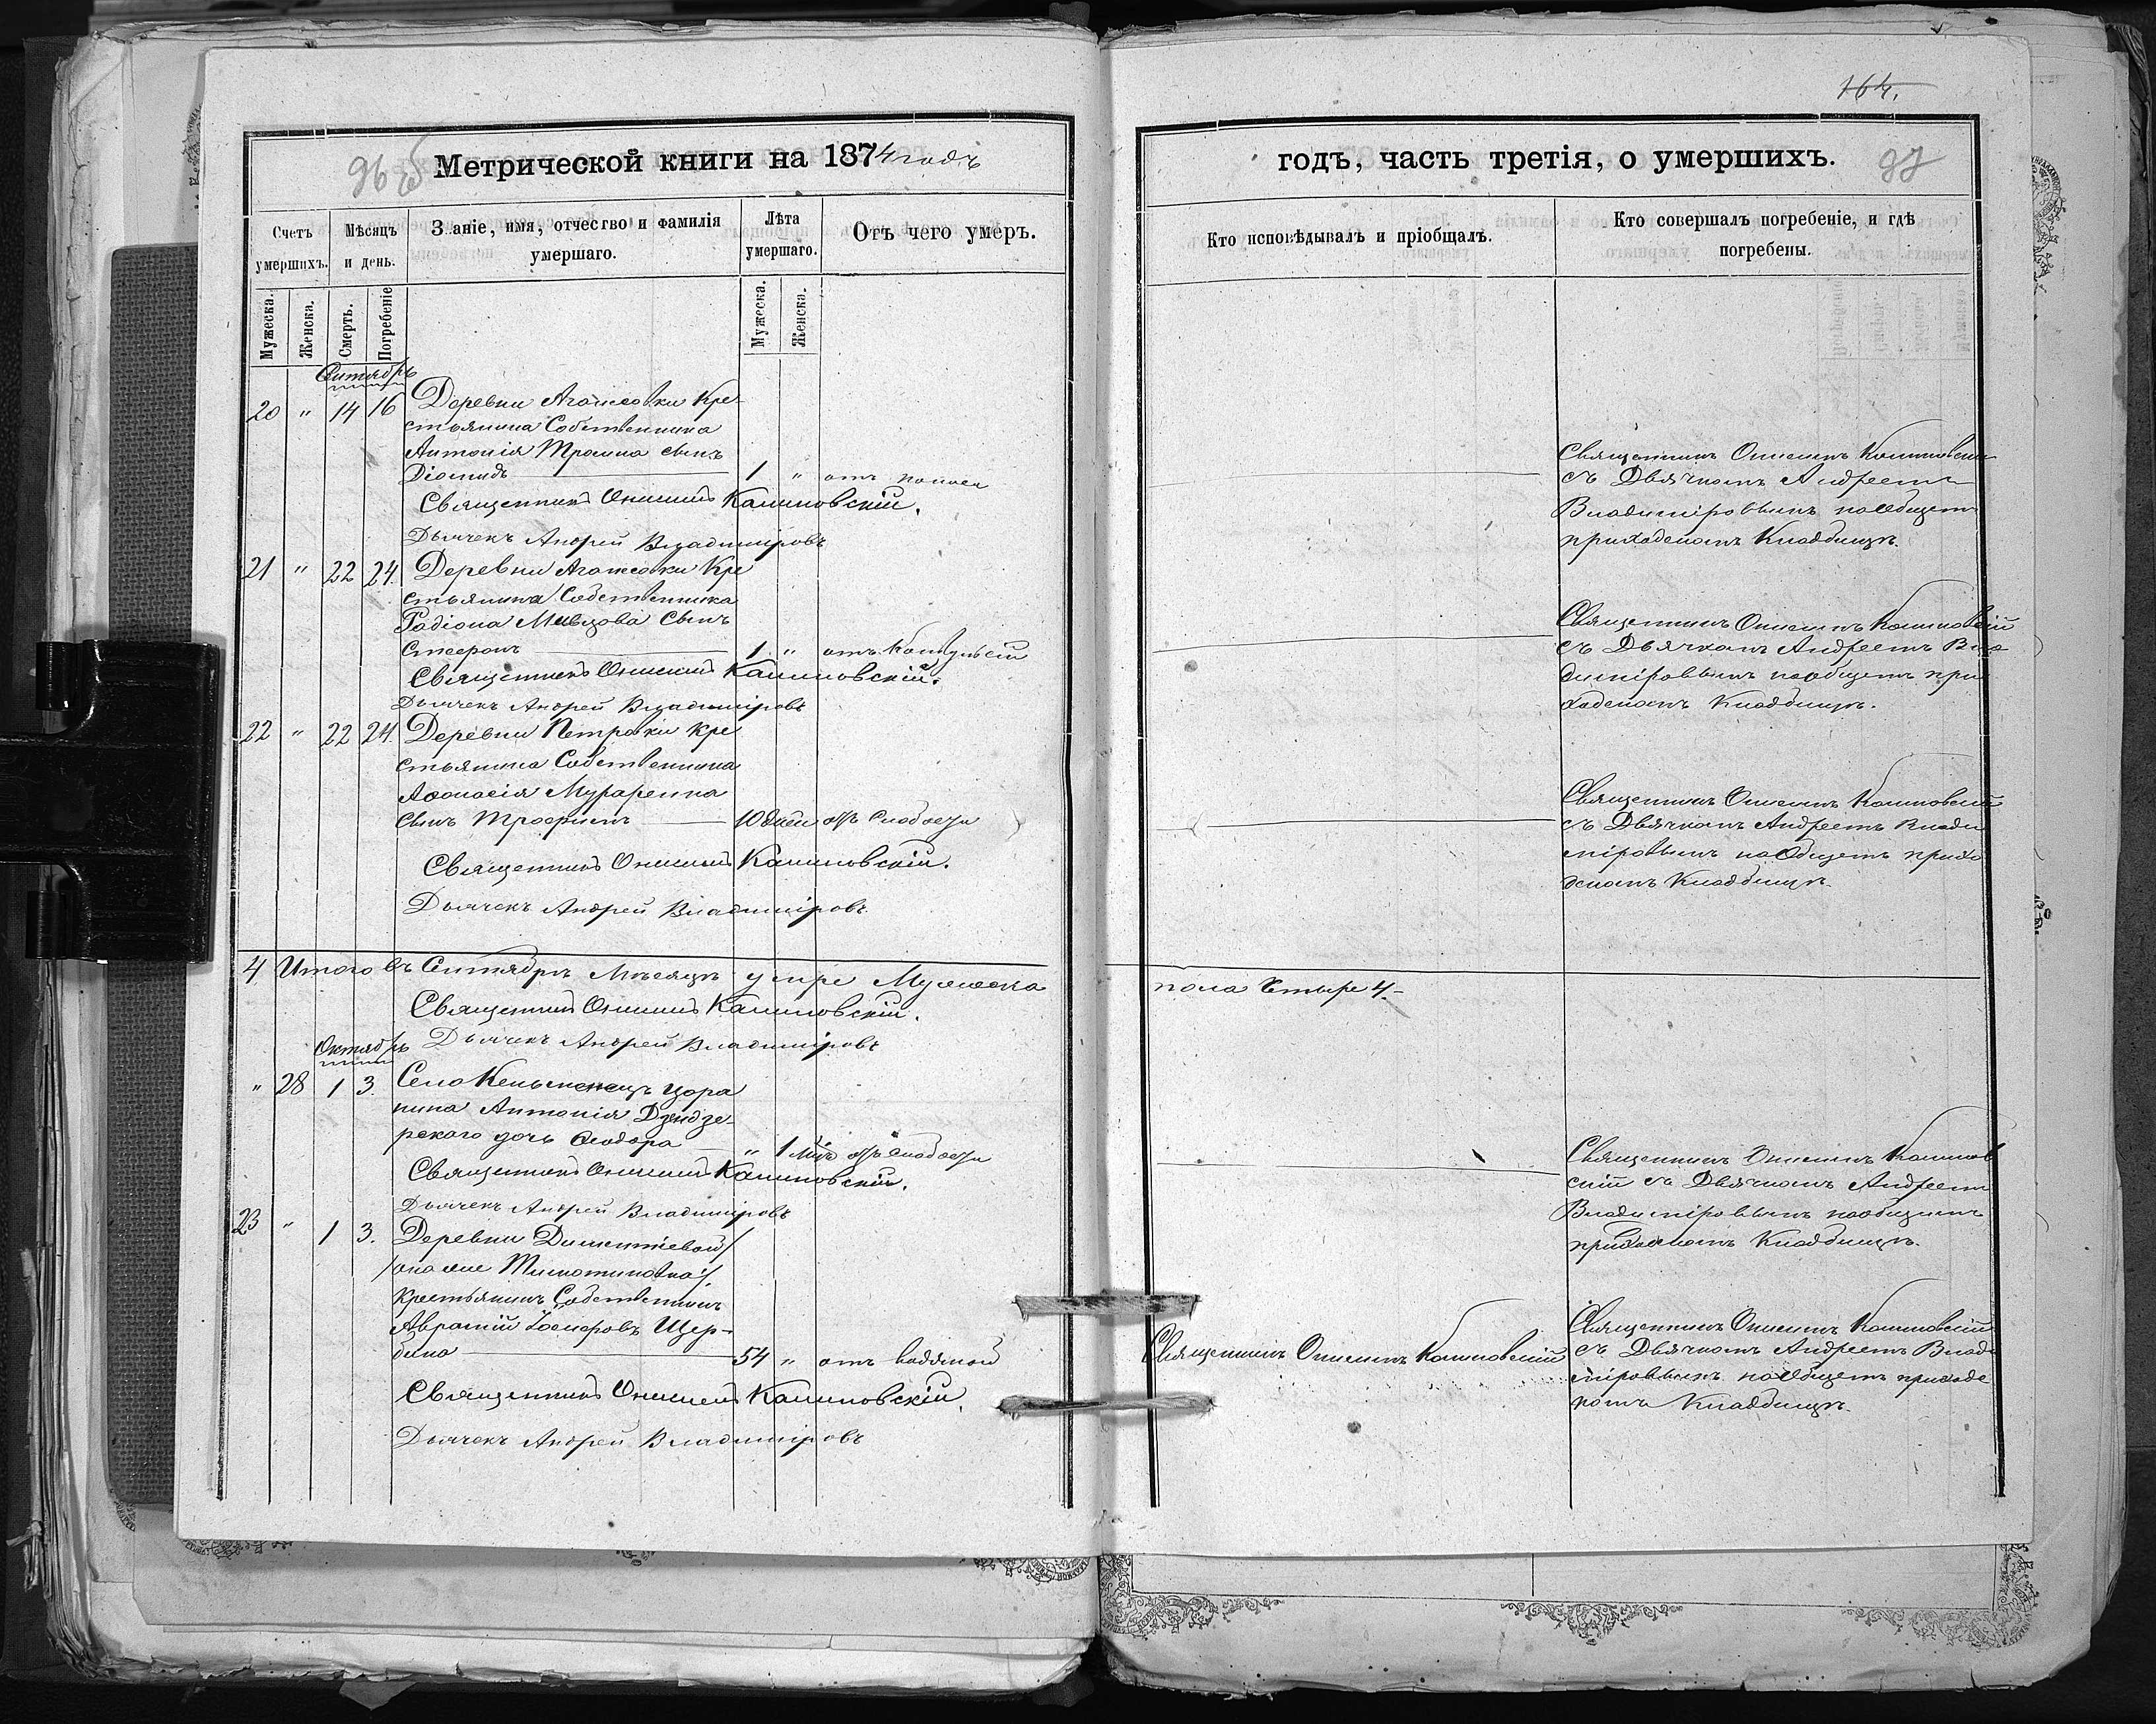 164.
96 об
Метрической книги на 1874 годъ
годъ, часть третія, о умершихъ.
97
Счетъ умершихъ.
Мѣсяцъ и день.
Званіе, имя, отчество и фамилія умершаго.
Лѣта умершаго.
Отъ чего умеръ.
Кто исповѣдывалъ и пріобщалъ.
Кто совершалъ погребеніе, и гдѣ погребены.
Мужеска.
Женска.
Смерть.
Погребеніе
Мужеска.
Женска.
Сентябрь
20 " 14 16 Деревни Кре-
стьянина Собственника
Антонія сынъ
Діомидъ 1 " отъ поноса
Священникъ Онисимъ Калиновскій.
Дьячекъ Андрей Владиміровъ
Священникъ Онисимъ Калиновскій
съ Дьячкомъ Андреемъ
Владиміровымъ на общемъ
приходскомъ Кладбищѣ.
21 " 22 24. Деревни Кре
стьянина Собственника
Радіона сынъ
1 " отъ
Священникъ Онисимъ Калиновскій.
Дьячекъ Андрей Владиміровъ
Священникъ Онисимъ Калиновскій
съ Дьячкомъ Андреемъ Вла
диміровымъ на общемъ при
ходскомъ Кладбищѣ.
22 " 22 24. Деревни Петровки Кре
стьянина Собственника
Аѳонасія Мураренка
сынъ Трофимъ 10 дней отъ слабости
Священникъ Онисимъ Калиновскій.
Дьячекъ Андрей Владиміровъ
Священникъ Онисимъ Калиновскій
съ Дьячкомъ Андреемъ Влади
міровымъ на общемъ прихо
дскомъ Кладбищѣ.
4 Итого въ Сентябрѣ Мѣсяцѣ умре Мужеска
пола Четыре 4.
Священникъ Онисимъ Калиновскій.
Дьячекъ Андрей Владиміровъ
Октябрь
" 28 1 3. Село
Антонія
дочь Ѳеодора " 1 Мѣс. отъ слабости
Священникъ Онисимъ Калиновскій.
Дьячекъ Андрей Владиміровъ
Священникъ Онисимъ Калинов
скій съ Дьячкомъ Андреемъ
Владиміровымъ на общемъ
приходскомъ Кладбищѣ.
23 " 1 3. Деревни
/она же
Крестьянинъ Собственникъ
Аврамій Щер-
бина 54 " отъ водяной
Священникъ Онисимъ Калиновскій.
Дьячекъ Андрей Владиміровъ
Священникъ Онисимъ Калиновскій
Священникъ Онисимъ Калиновскій
съ Дьячкомъ Андреемъ Влади
міровымъ на общемъ приходс
комъ Кладбищѣ.